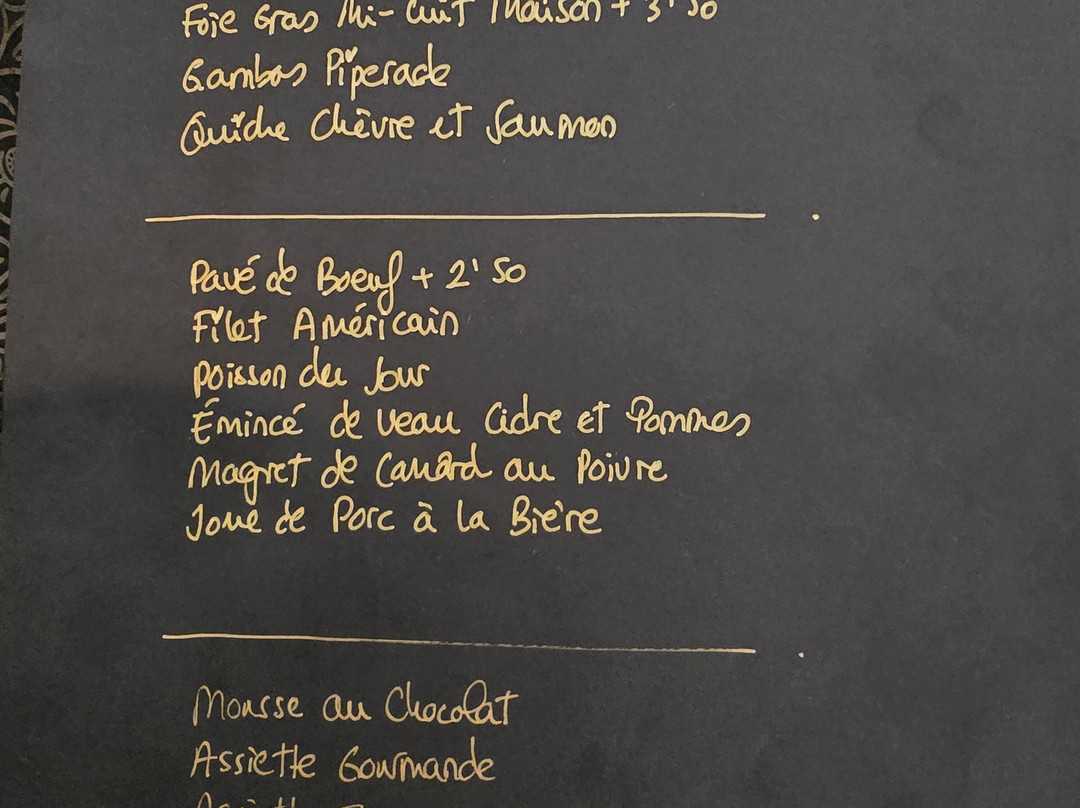 Foie Gras Mi-Cuit Maison + 3'50
Gambas Piperade
Quiche Chèvre et Saumon
Pavé de Boeuf + 2'50
Filet Américain
Poisson du Jour
Émincé de Veau Cidre et Pommes
Magret de Canard au Poivre
Joue de Porc à la Bière
Mousse au Chocolat
Assiette Gourmande